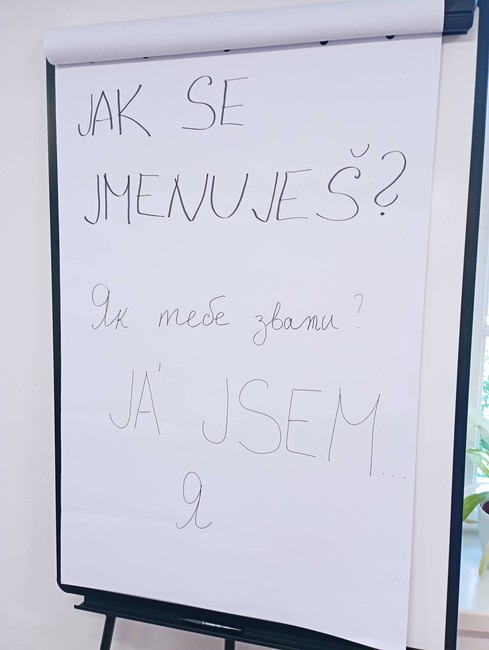 JAK SE
JMENUJEŠ?
Як тебе звати?
JÁ JSEM...
Я